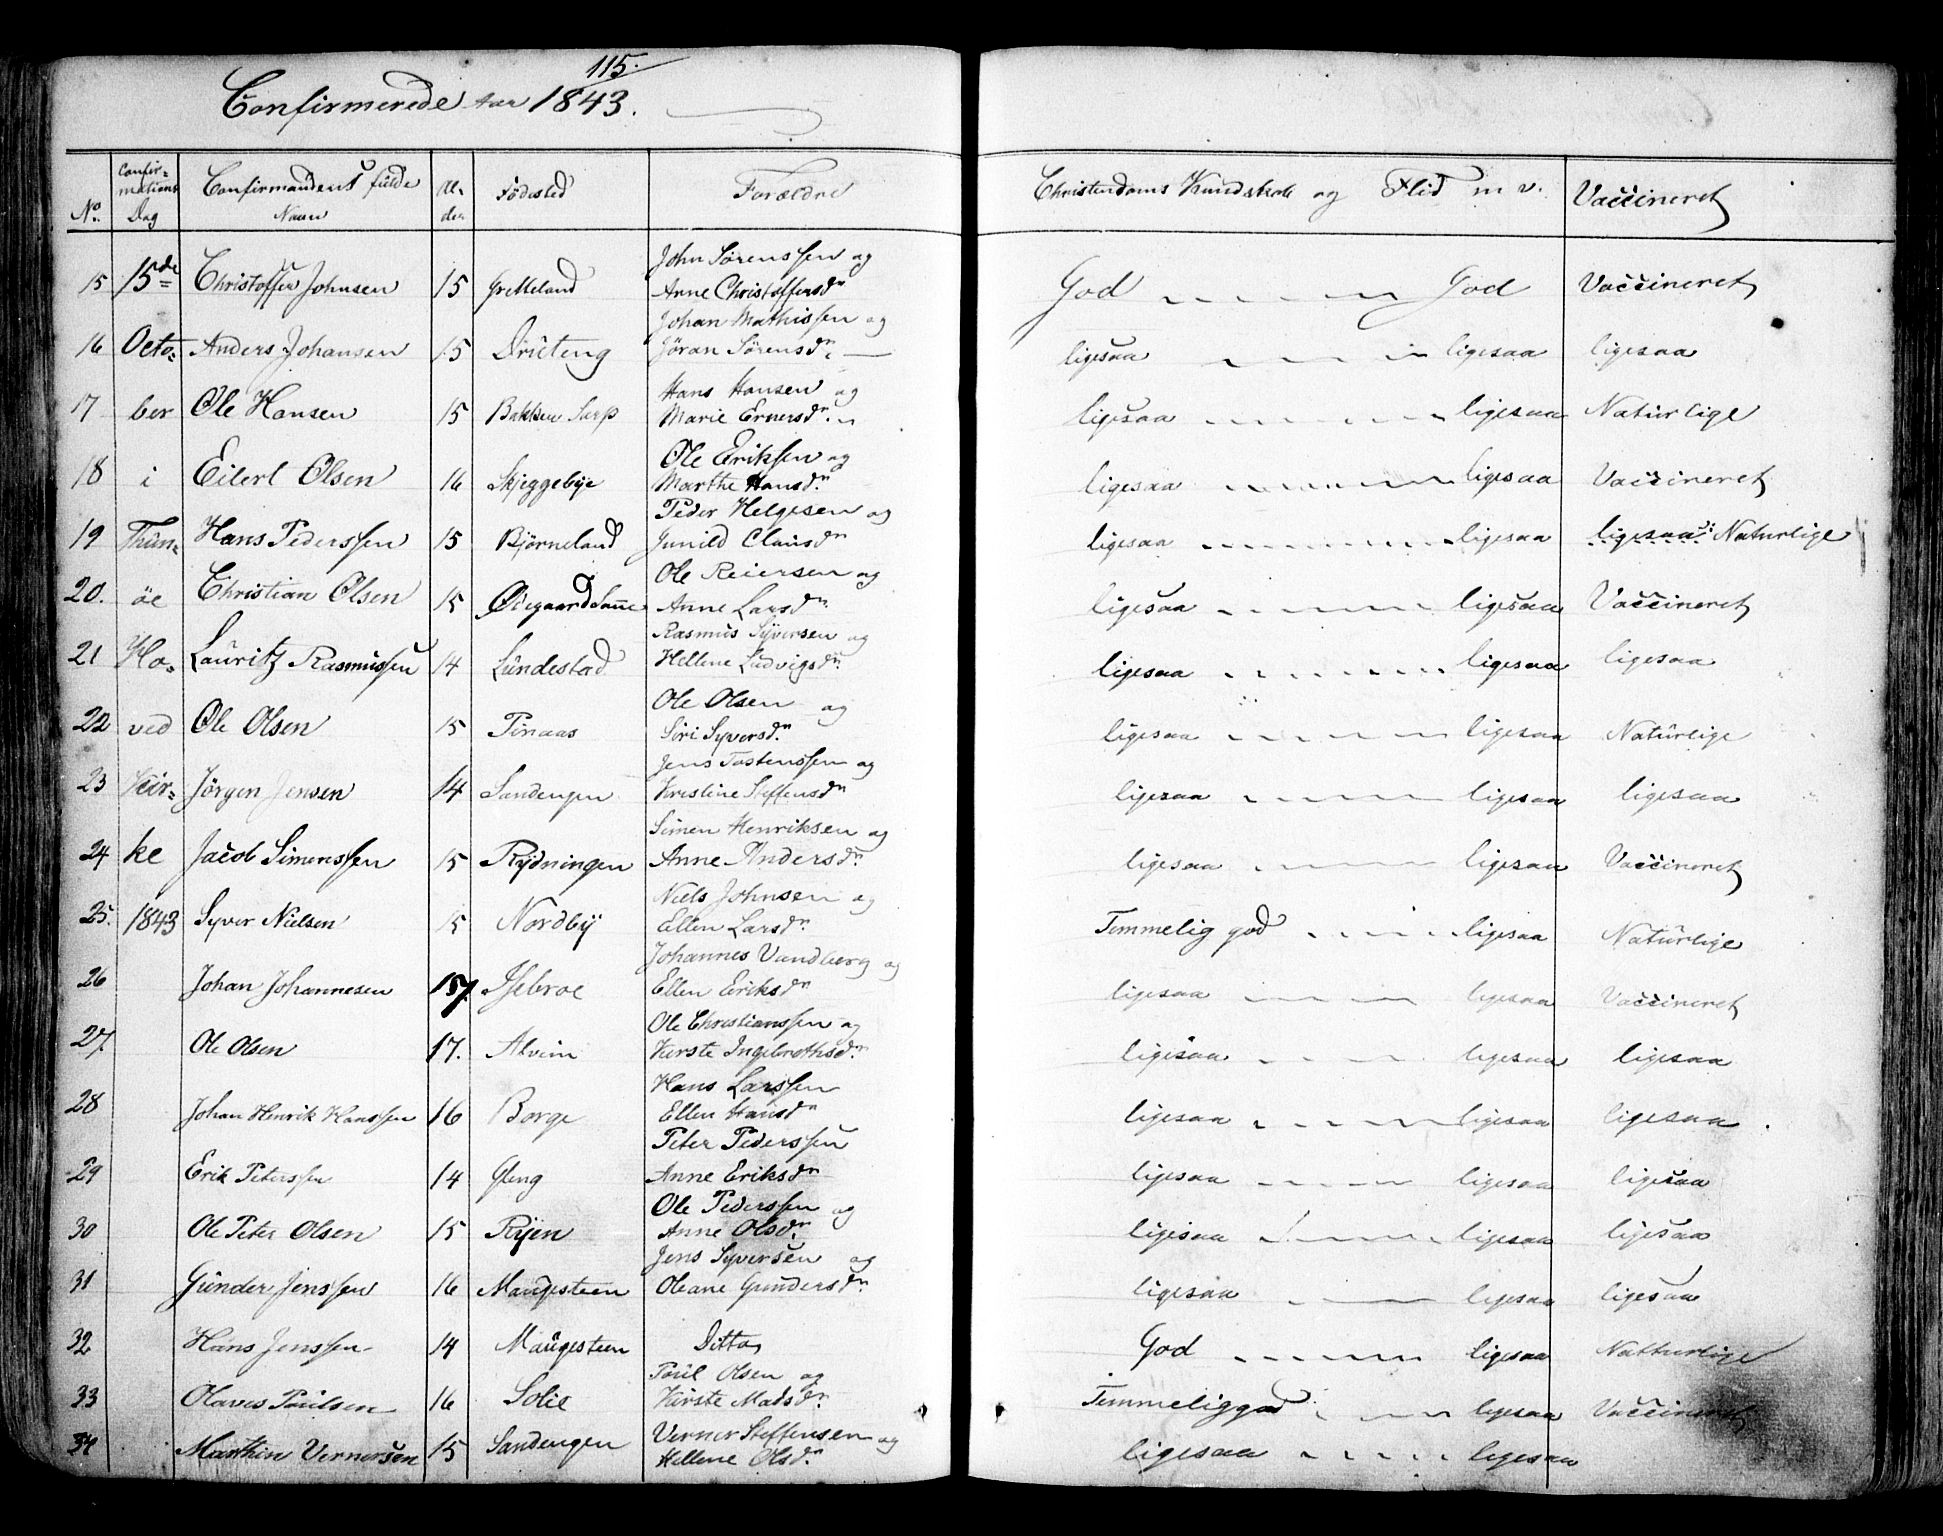 115.
Confirmerede Aar 1843.
No. Confirmations Dag Confirmandens fulde Navn Alder Fødested Forældre Christendoms Kundskab og Flid m v. Vaccineret
John Sørenssen og
15 15de Christoffer Johnsen 15 Grelleland Anne Christoffersdr God God Vaccineret
Johan Mathissen og
16 Octo- Anders Johansen 15 Jöran Sørensdr. ligesaa ligesaa ligesaa
Hans Hansen og
17 ber Ole Hansen 15 Bakken Sarp Marie Ernersdr. ligesaa ligesaa Naturlige
Ole Eriksen og
18 i Eilert Olsen 16 Skjeggebye Marthe Hansdr. ligesaa ligesaa Vaccineret
Peder Helgesen og
19 Thun- Hans Pederssen 15 Bjørneland Gunild Clausdr ligesaa ligesaa ligesaa Naturlige
Ole Reiersen og
20. öe Christian Olsen 15 Ødegaard Anne Larsdr. ligesaa ligesaa Vaccineret
Rasmus Syversen og
21 Ho- Lauritz Rasmussen 14 Lundestad Hellene Ludvigsdr. ligesaa ligesaa ligesaa
Ole Olsen og
22 ved Ole Olsen 15 Tinaas Siri Syversdr. ligesaa ligesaa Naturlige
Jens Tostenssen og
23 Kir- Jörgen Jensen 14 Sandengen Kristine Steffensdr ligesaa ligesaa ligesaa
Simen Henriksen og
24 ke Jacob Simenssen 15 Rydningen Anne Andersdr. ligesaa ligesaa Vaccineret
Niels Johnsen og
25. 1843 Syver Nielsen 15 Nordby Ellen Larsdr. Temmelig god ligesaa Naturlige
Johannes Vandberg og
26 Johan Johannesen 15 Isebroe Ellen Eriksdr ligesaa ligesaa Vaccineret
Ole Christianssen og
27. Ole Olsen 17. Alvim Kirste Ingebrethsdr. ligesaa ligesaa ligesaa
Hans Larssen
28 Johan Henrik Hanssen 16 Borge Ellen Hansdr ligesaa ligesaa ligesaa.
Peter Pederssen
29 Erik Peterssen 14 Gleng Anne Eriksdr ligesaa ligesaa ligesaa
Ole Pederssen og
30 Ole Peter Olsen 15 Ryen Anne Olsdr. ligesaa ligesaa ligesaa
Jens Syversen og
31 Gunder Jenssen 16 Maugesteen Oleane Gundersdr. ligesaa ligesaa ligesaa
32 Hans Jenssen 14 Maugesteen Ditto God ligesaa Natturlige
Poul Olsen og
33 Olaves Poulsen 16 Solie Kirste Madsdr. Temmelig god ligesaa Vaccineret
Verner Steffensen og
34 Marthin Vernersen 15 Sandengen Hellene Olsdr. ligesaa ligesaa